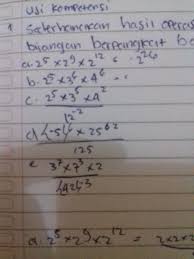 uji kompetensi
1 Sederhanakan hasil operasi
bilangan berpangkat b
a. 2⁵ × 2⁹ × 2¹² = 2²⁶
b. 2⁵ × 3⁶ × 4⁶ =
c. 2⁵ × 3⁵ × 4²
12⁻²
d (-5)⁶ × 25⁶²
125
e 3⁷ × 7³ × 2
a. 2⁵ × 2⁹ × 2¹² = 2×2×2